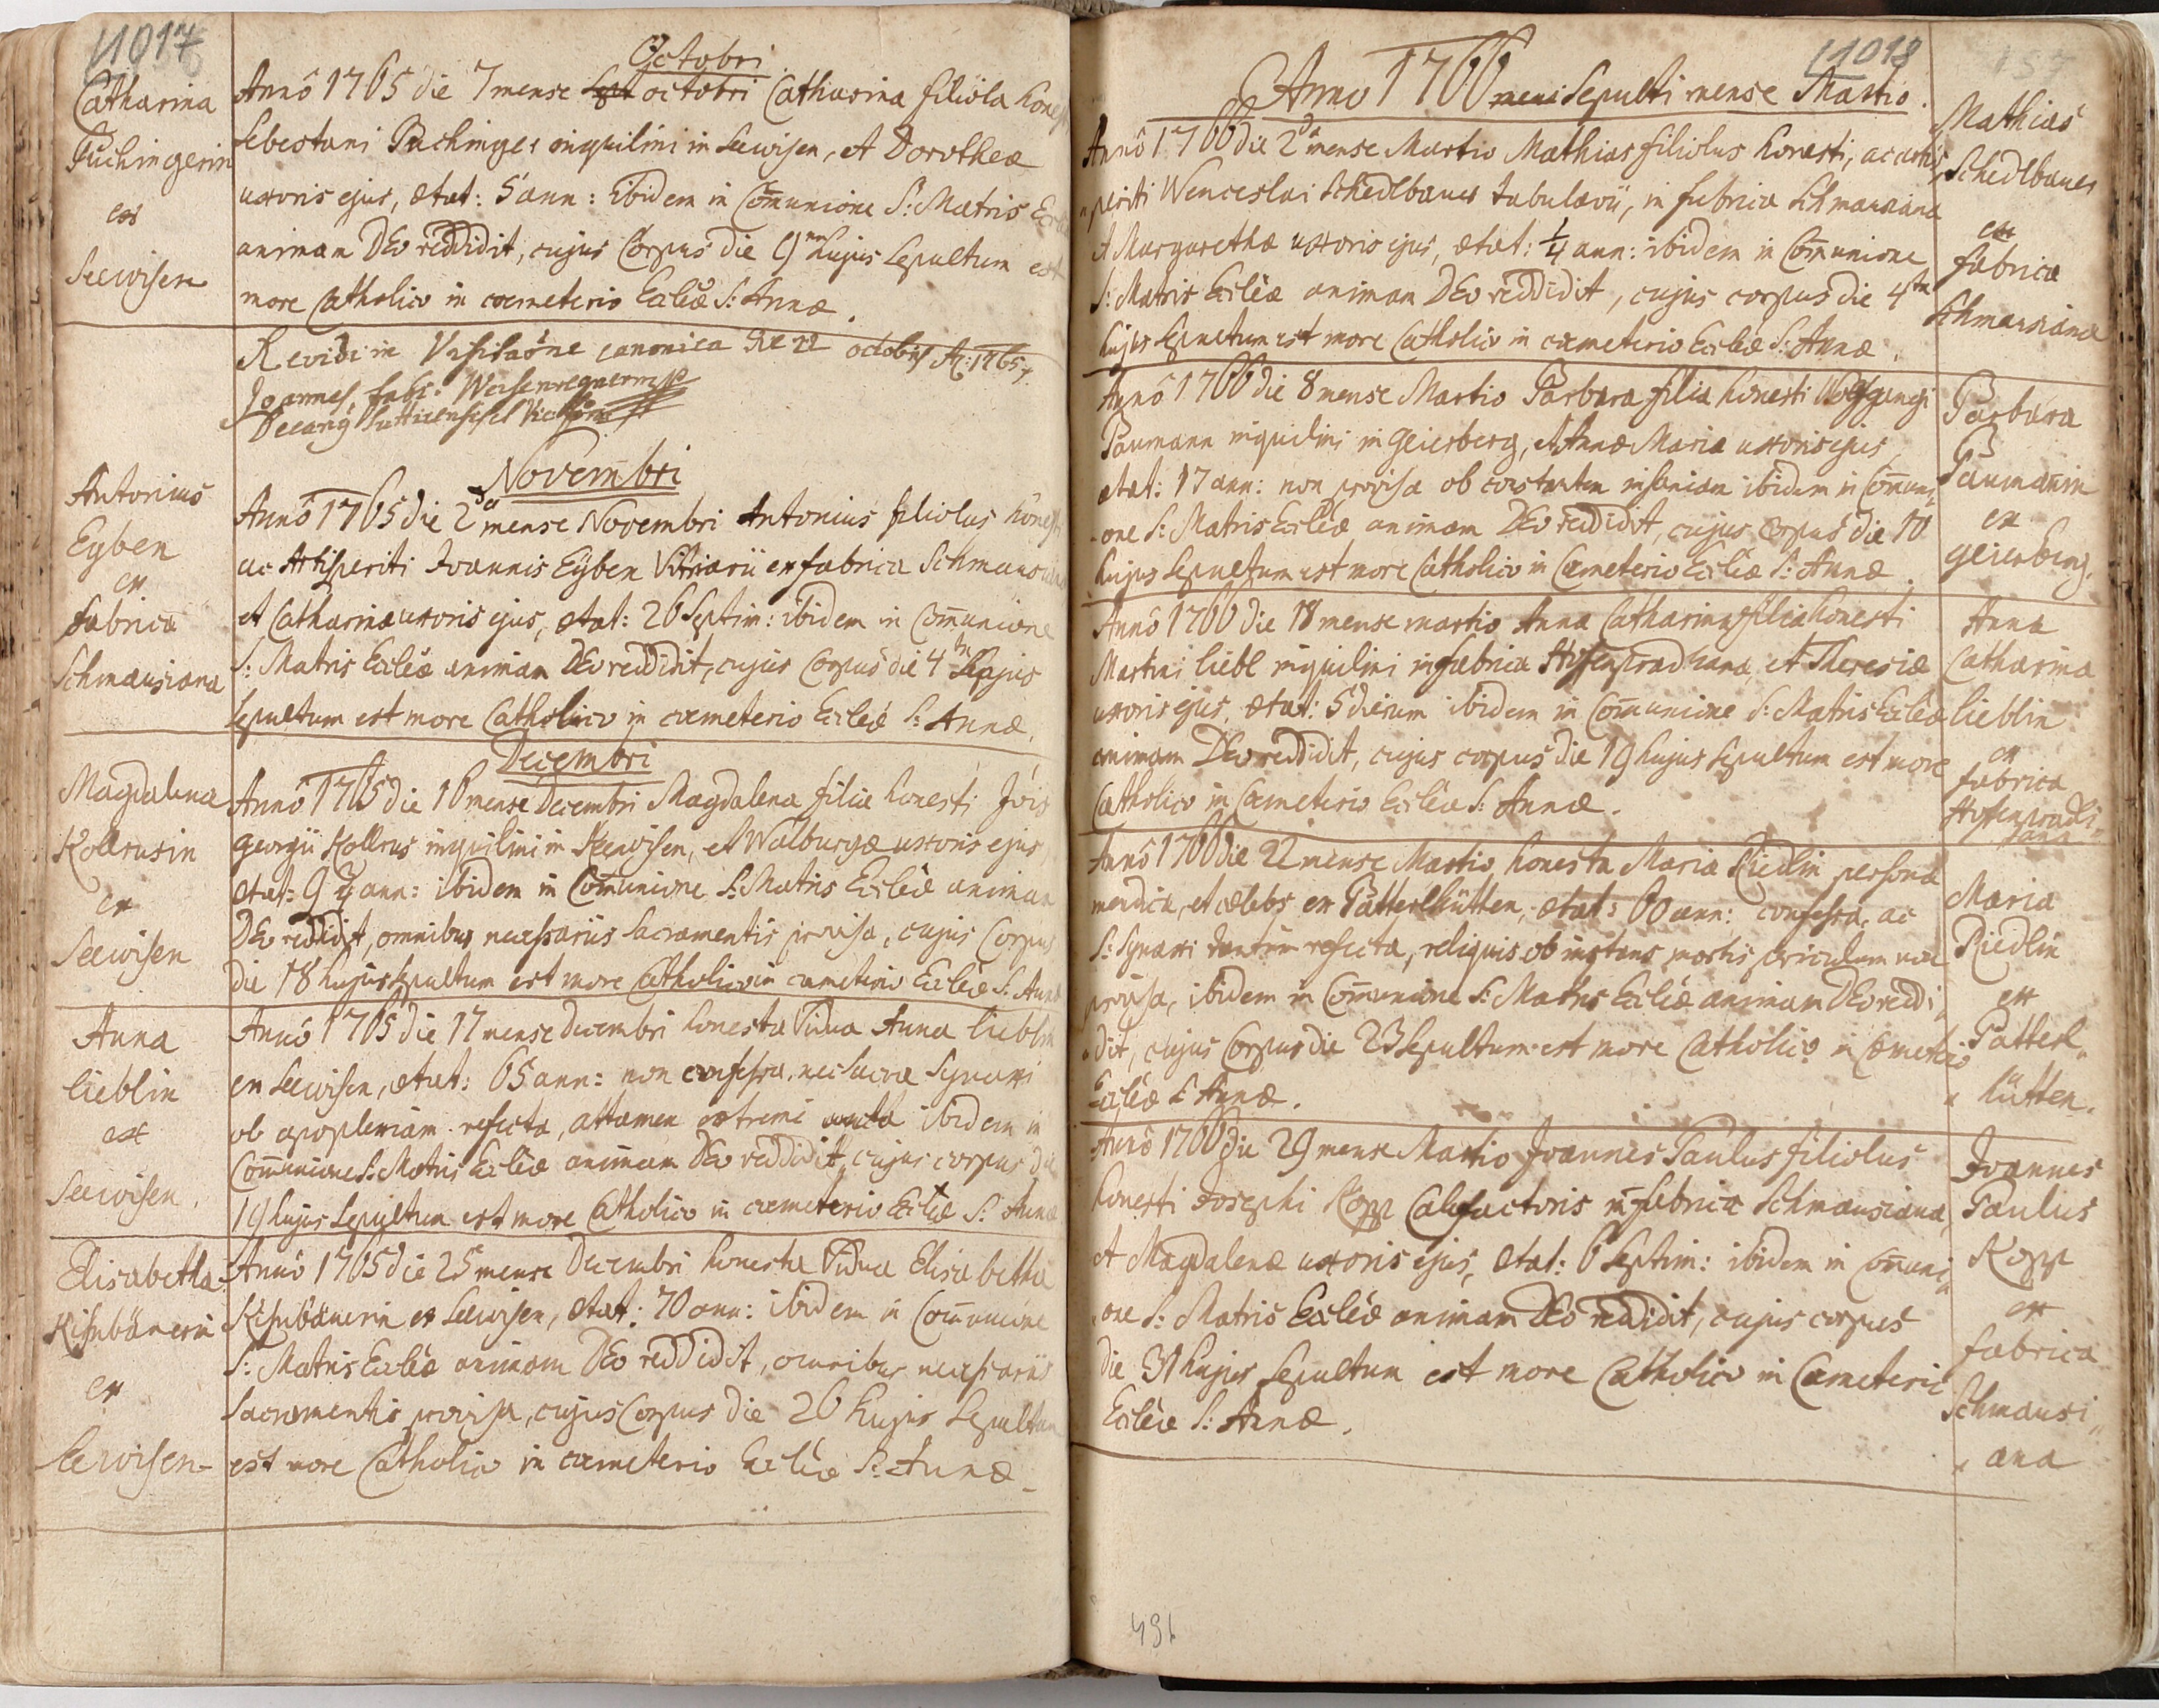 11017
Octobri
Catharina
Puchingerin
ex
Seewisen
Annô 1765 die 7 mense octobri Catharina filiola hones
Sebestani Puchinger inquilini in Seewisen, et Dorotheæ
uxoris ejus, ætat: 5 ann: ibidem in Com̄unione S: Matris
animam DEo reddidit, cujus Corpus die 9 hujus Sepultum est
more Catholico in cœmeterio Eccliæ S: Annæ.
Revidi in Visitaõne canonica die 22 octobris Aõ: 1765
Joannes
Decang
Novembri
Antonius
Eyben
ex
fabrica
Schmausiana
Annô 1765 die 2da mense Novembri Antonius filiolus hones
ac Artisperiti Joannis Eyben Vitriarii ex fabrica Schmausiana
et Catharinæ uxoris ejus, ætat: 26 Septim: ibidem in Com̄unione
S: Matris Eccliæ animam DEo reddidit, cujus Corpus die 4tn hujus
Sepultum est more Catholico in cœmeterio Eccliæ S: Annæ.
Decembri
Magdalena
Kollrusin
ex
Seewisen
Annô 1765 die 16 mense Decembri Magdalena filia honesti Jois
Georgii Kollrus inquilini in Seewisen, et Walburgæ uxoris ejus
ætat: 9 ann: ibidem in Com̄unione S: Matris Eccliæ animam
DEo reddidit, omnibus necessariis Sacramentis provisa, cujus Corpus
die 18 hujus Sepultum est more Catholico in cœmeterio Eccliæ S: Annæ
Anna
Lieblin
ex
Seewisen.
Annô 1765 die 17 mense Decembri honesta Vidua Anna Lieblin
ex Seewisen, ætat: 65 ann: non confessa, nec Sacra Synaxi
ob apoplexiam refecta, attamen extremi ibidem in
Com̄unione S: Matris Eccliæ animam DEo reddidit, cujus corpus die
19 hujus Sepultum est more Catholico in cœmeterio Eccliæ S: Annæ
Elisabetha
ex
Seewisen
Annô 1765 die 25 mense Decembri honesta Vidua Elisabetha
ex Seewisen, ætat: 70 ann: ibidem in Com̄unione
S: Matris Eccliæ animam DEo reddidit, omnibus necessariis
Sacramentis provisa, cujus Corpus die 26 hujus Sepultum
est more Catholico in cœmeterio Eccliæ S: Annæ
11018
157
Anno 1766 Sepulti mense Martio.
Annô 1766 die 2da mense Martio Mathias filiolus honesti, ac artis
periti Wenceslai Schedlbauer tabularii, in fabrica Schmausiana
et Margarethæ uxoris ejus, ætat: 1/4 ann: ibidem in Com̄unione
S: Matris Eccliæ animam DEo reddidit, cujus corpus die 4tn
hujus Sepultum est more Catholico in cœmeterio Eccliæ S: Annæ.
Mathias
Schedlbauer
ex
fabrica
Schmausiana
Annô 1766 die 8 mense Martio Parbara filia honesti Wolfgangi
Paumann inquilini in Geiersberg, et Annæ Mariæ uxoris ejus,
ætat: 17 ann: non provisa ob constantem insaniam ibidem in Com̄uni
one S: Matris Eccliæ animam DEo reddidit, cujus corpus die 10
hujus Sepultum est more Catholico in Cœmeterio Eccliæ S: Annæ.
Parbara
Paumañin
ex
Geiersberg.
Annô 1766 die 18 mense martio Anna Catharina filia honesti
Martini Liebl inquilini in fabrica et Theresiæ
uxoris ejus, ætat: 5 dierum ibidem in Com̄unione S: Matris Eccliæ
animam DEo reddidit, cujus corpus die 19 hujus Sepultum est more
Catholico in Cœmeterio Eccliæ S: Annæ.
Anna
Catharina
Lieblin
ex
fabrica
Annô 1766 die 22 mense Martio honesta Maria Riedlin persona
mendica, et cælebs ex Patterlhütten, ætat: 60 ann: confessa, ac
S: Synaxi tantum refecta, reliquis ob instans mortis periculum non
provisa, ibidem in Com̄unione S: Matris Eccliæ animam DEo reddi
dit, cujus Corpus die 23 Sepultum est more Catholico in Cœmeterio
Eccliæ S: Annæ.
Maria
Riedlin
ex
Patterl
hütten.
Annô 1766 die 29 mense Martio Joannes Paulus filiolus
honesti Josephi Kopp Calefactoris in fabrica Schmausiana,
et Magdalenæ uxoris ejus, ætat: 6 Septim: ibidem in Com̄uni
one S: Matris Eccliæ animam DEo reddidit, cujus corpus
die 31 hujus Sepultum est more Catholico in Cœmeterio
Eccliæ S: Annæ.
Joannes
Paulus
Kopp
ex
fabrica
Schmausi
ana
491